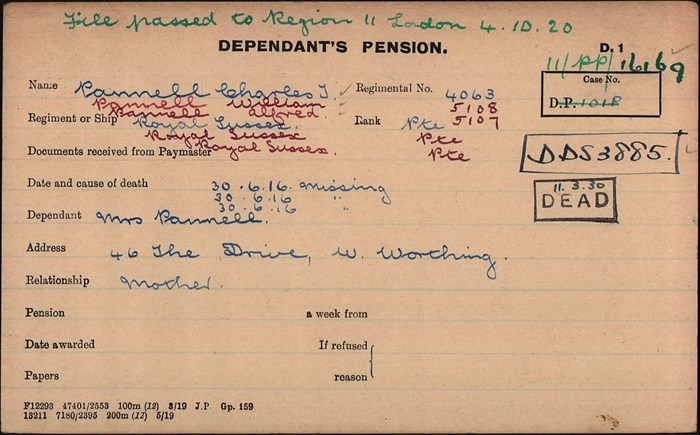 File passed to Region 11 London 4.10.20
DEPENDANT'S PENSION.
D. 1
11/PP/16169
Name Pannell Charles J.
Pannell William
Pannell Alfred.
Regimental No. 4063
5108
5107
Case No.
D.P. 1018
Regiment or Ship Royal Sussex.
Royal Sussex
Royal Sussex.
Rank Pte
Pte
Pte
Documents received from Paymaster
DDS3885.
Date and cause of death 30.6.16. missing
30.6.16 "
30.6.16 "
11.3.30
DEAD
Dependant Mrs Pannell.
Address 46 The Drive, W. Worthing.
Relationship Mother.
Pension a week from
Date awarded If refused
Papers reason
F12293 47401/2553 100m (12) 3/19 J.P. Gp. 159
13211 7180/2395 200m (12) 5/19